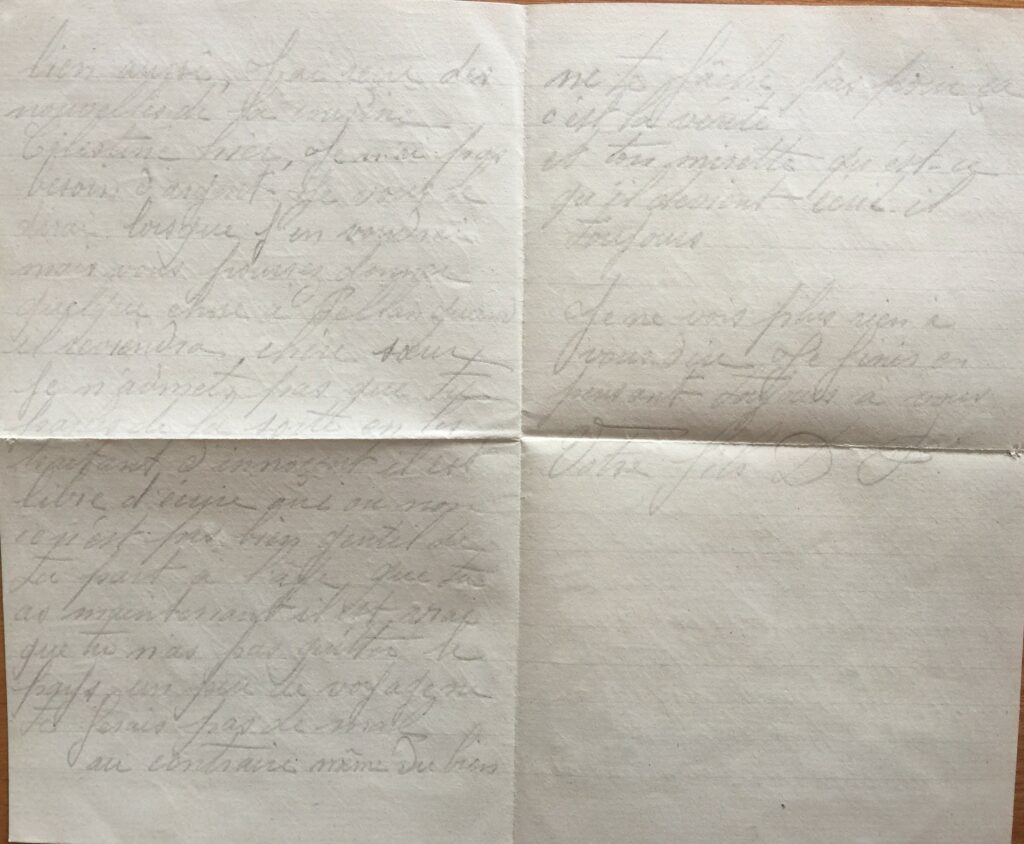 bien aussi, J'ai reçu des
nouvelles de la cousine
Célestine hier, Je n'ai pas
besoin d'argent. Je vous le
dirai lorsque J'en voudrai
mais vous pouvez donner
quelque chose à quand
il reviendra, chère sœur
Je n'admets pas que tu
parles de la sorte en les
traitant d'innocent il est
libre d'écrire qui ou non
ce n'est pas bien gentil de
ta part a l'age que tu
as maintenant il est vrai
que tu n'as pas quitté le
pays un peu de voyage ne
te ferais pas de mal
au contraire même du bien
ne te fâche pas pour ça
c'est la vérité
et ton minette qu'est-ce
qu'il devient il
toujours
Je ne vois plus rien à
vous dire Je finis en
pensant toujours à vous
Votre fils D P